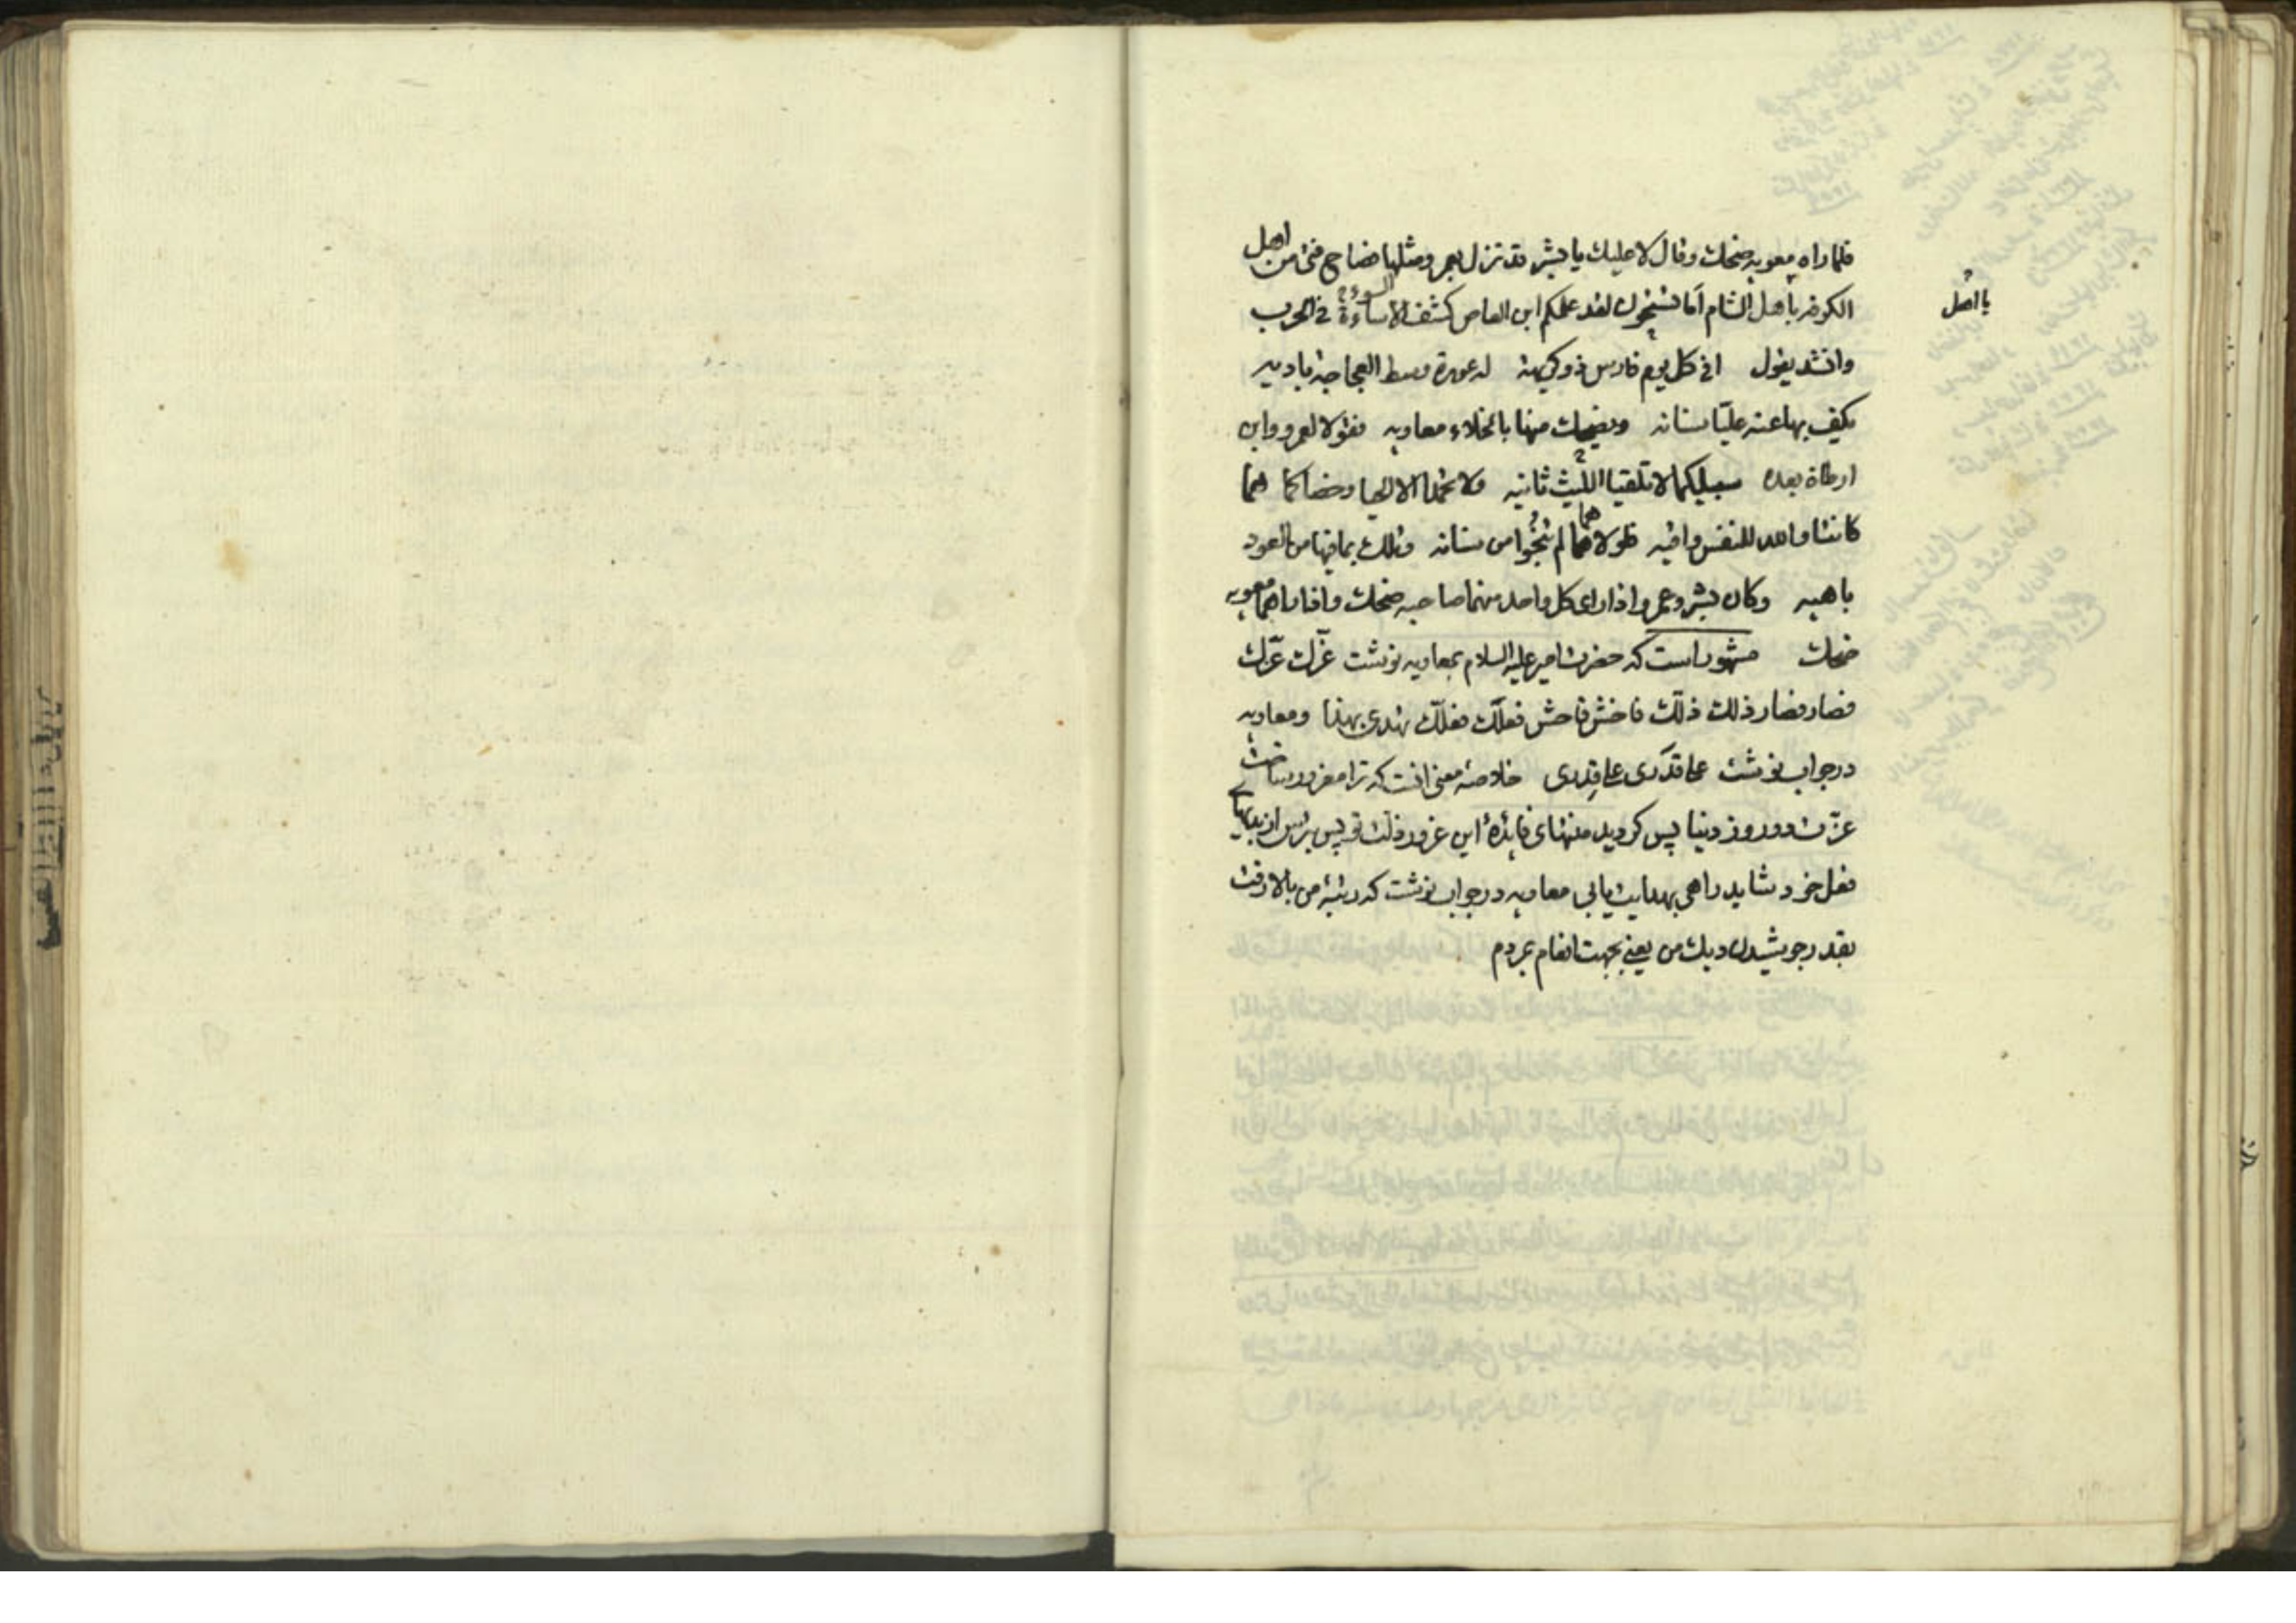 فلما راه معويه ضحك وقال لا عليك يا بشر قد نزل بعمرو مثلها فصاح فتى من اهل
الكوفه يا اهل الشام اما تستحون لقد علمكم ابن العاص كشف الاساءة السوءة في الحرب
يا اهل
وانشد يقول افي كل يوم فارس ذو كريهة له عورة وسط العجاجة باديه
يكف بها عنه عليّا سنانه ويضحك منها بالخلاء معاويه فقولا لعمرو وابن
ارطاة بعده سبيلكما لا تلقيا الليث ثانيه ولا تحمدا الا الحيا وخصاكما هما
كانتا والله للنفس واقيه فلولا هما لم تنجوا من سنانه وتلك بما فيها من العود
ناهيه وكان بشر وعمرو اذا راى كل واحد منهما صاحبه ضحك واذا راهما معويه
ضحك مشهور است كه حضرت امير عليه السلام بمعاويه نوشت غرّك عزّك
فصار فصار ذلك ذلّك فاخش فاحش فعلك فعلّك تهدى بهذا ومعاويه
در جواب نوشت على قدرى غلى قدرى خلاصهٔ معنى انست كه ترا مغرور ساخت
عزّت دو روز دنيا پس گرديد منتهاى فايدهٔ اين غرور ذلت تو پس بترس از بديهاى
فعل خود شايد راهى بهدايت يابى معاويه در جواب نوشت كه رتبهٔ من بالا رفت
بقدر جوشيدن ديك من يعني بجهت انعام بمردم